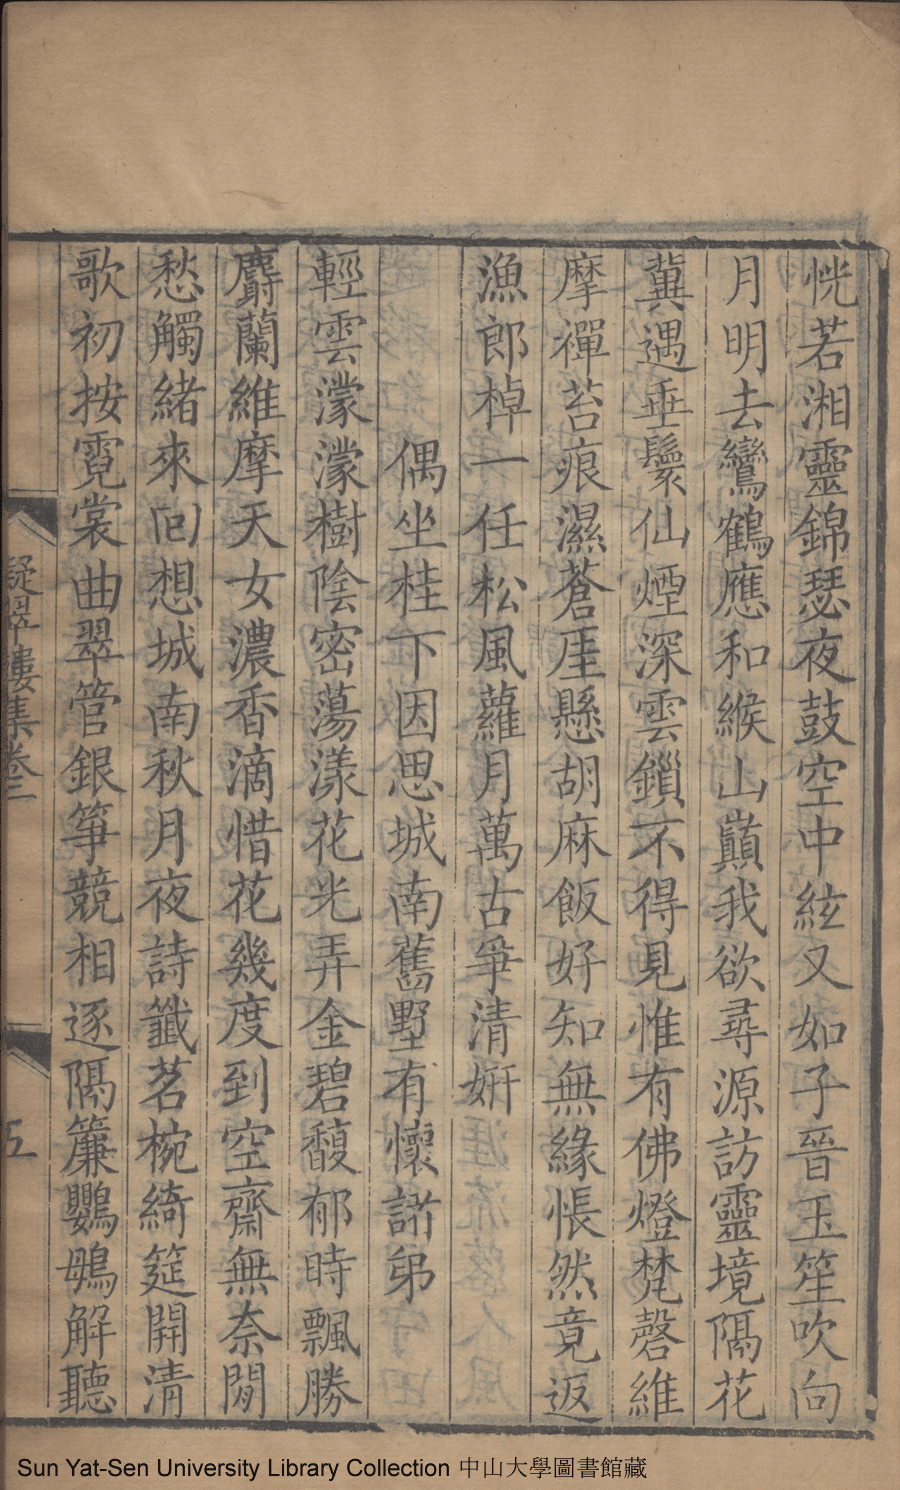 恍若湘靈錦瑟夜鼓空中絃又如子晉玉笙吹向
月明去鸞鶴應和緱山巔我欲尋源訪靈境隔花
冀遇垂鬟仙煙深雲鎖不得見惟有佛燈梵磬維
摩禪苔痕濕蒼厓懸胡麻飯好知無緣悵然竟返
漁郎棹一任松風蘿月萬古爭清妍
偶坐桂下因思城南舊墅有懷諸弟
輕雲濛濛樹陰密蕩漾花光弄金碧馥郁時飄勝
麝蘭維摩天女濃香滴惜花幾度到空齋無奈閒
愁觸緒來回想城南秋月夜詩籤茗椀綺筵開清
歌初按霓裳曲翠管銀箏競相逐隔簾鸚鵡解聽
凝翠樓集卷三
五
Sun Yat-Sen University Library Collection 中山大學圖書館藏